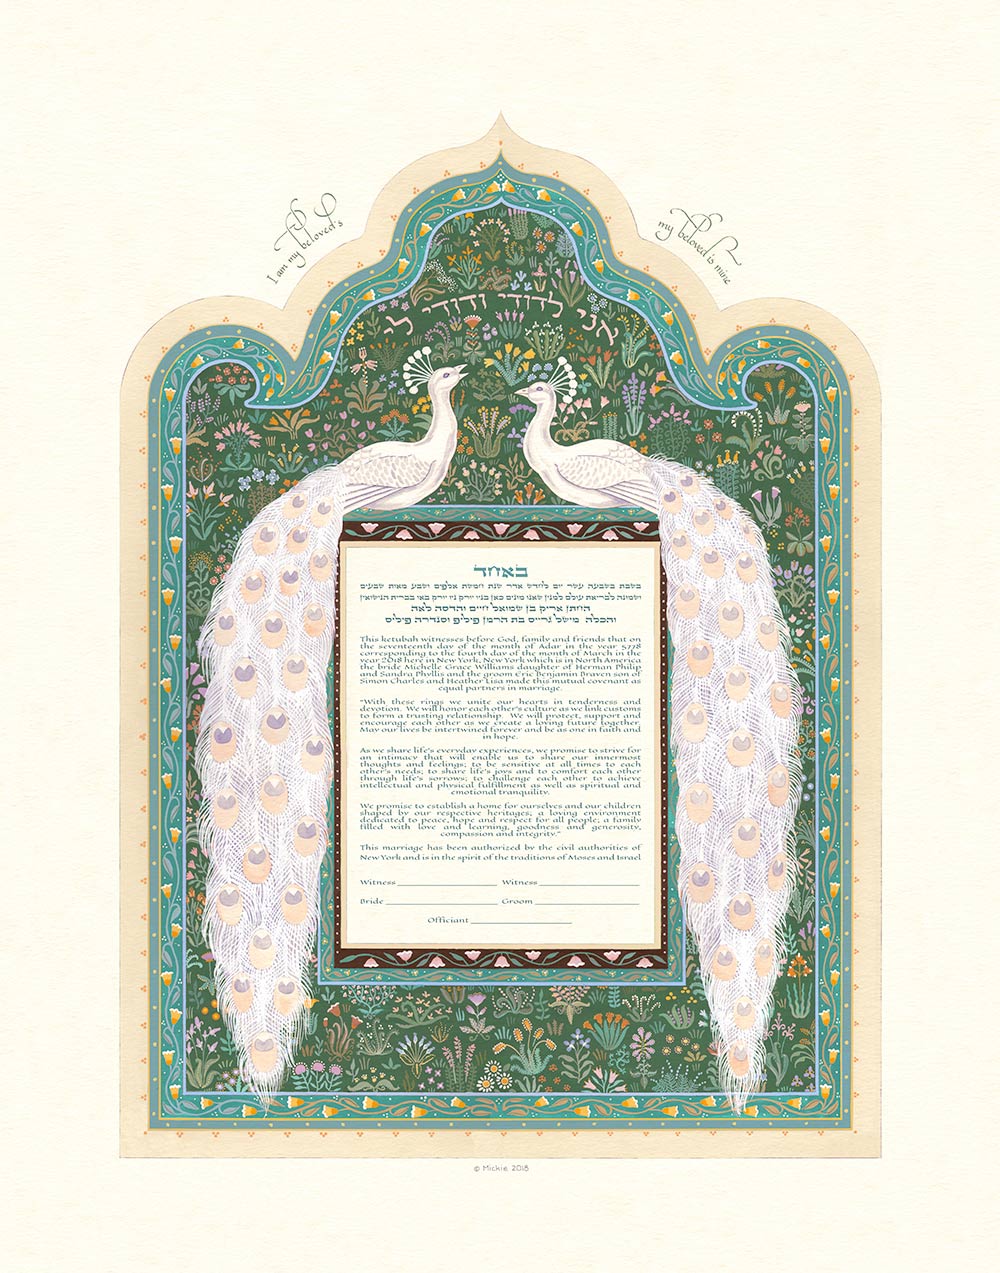 I am my beloved's
my beloved is mine
אני לדודי ודודי לי
באחד
בשבת בשבעה עשר יום לחדש אדר שנת חמשת אלפים ושבע מאות שבעים
ושמונה לבריאת עולם למנין שאנו מונים כאן בניו יורק ניו יורק באו בברית הנישואין
החתן אריק בן שמואל חיים והדסה לאה
והכלה מישל גרייס בת הרמן פיליפ וסנדרה פיליס
This ketubah witnesses before God, family and friends that on
the seventeenth day of the month of Adar in the year 5778
corresponding to the fourth day of the month of March in the
year 2018 here in New York, New York which is in North America
the bride Michelle Grace Williams daughter of Herman Philip
and Sandra Phyllis and the groom Eric Benjamin Braven son of
Simon Charles and Heather Lisa made this mutual covenant as
equal partners in marriage.
"With these rings we unite our hearts in tenderness and
devotion. We will honor each other's culture as we link customs
to form a trusting relationship. We will protect, support and
encourage each other as we create a loving future together.
May our lives be intertwined forever and be as one in faith and
in hope.
As we share life's everyday experiences, we promise to strive for
an intimacy that will enable us to share our innermost
thoughts and feelings; to be sensitive at all times to each
other's needs; to share life's joys and to comfort each other
through life's sorrows; to challenge each other to achieve
intellectual and physical fulfillment as well as spiritual and
emotional tranquility.
We promise to establish a home for ourselves and our children
shaped by our respective heritages; a loving environment
dedicated to peace, hope and respect for all people; a family
filled with love and learning, goodness and generosity,
compassion and integrity."
This marriage has been authorized by the civil authorities of
New York and is in the spirit of the traditions of Moses and Israel
Witness Witness
Bride Groom
Officiant
© Mickie 2018